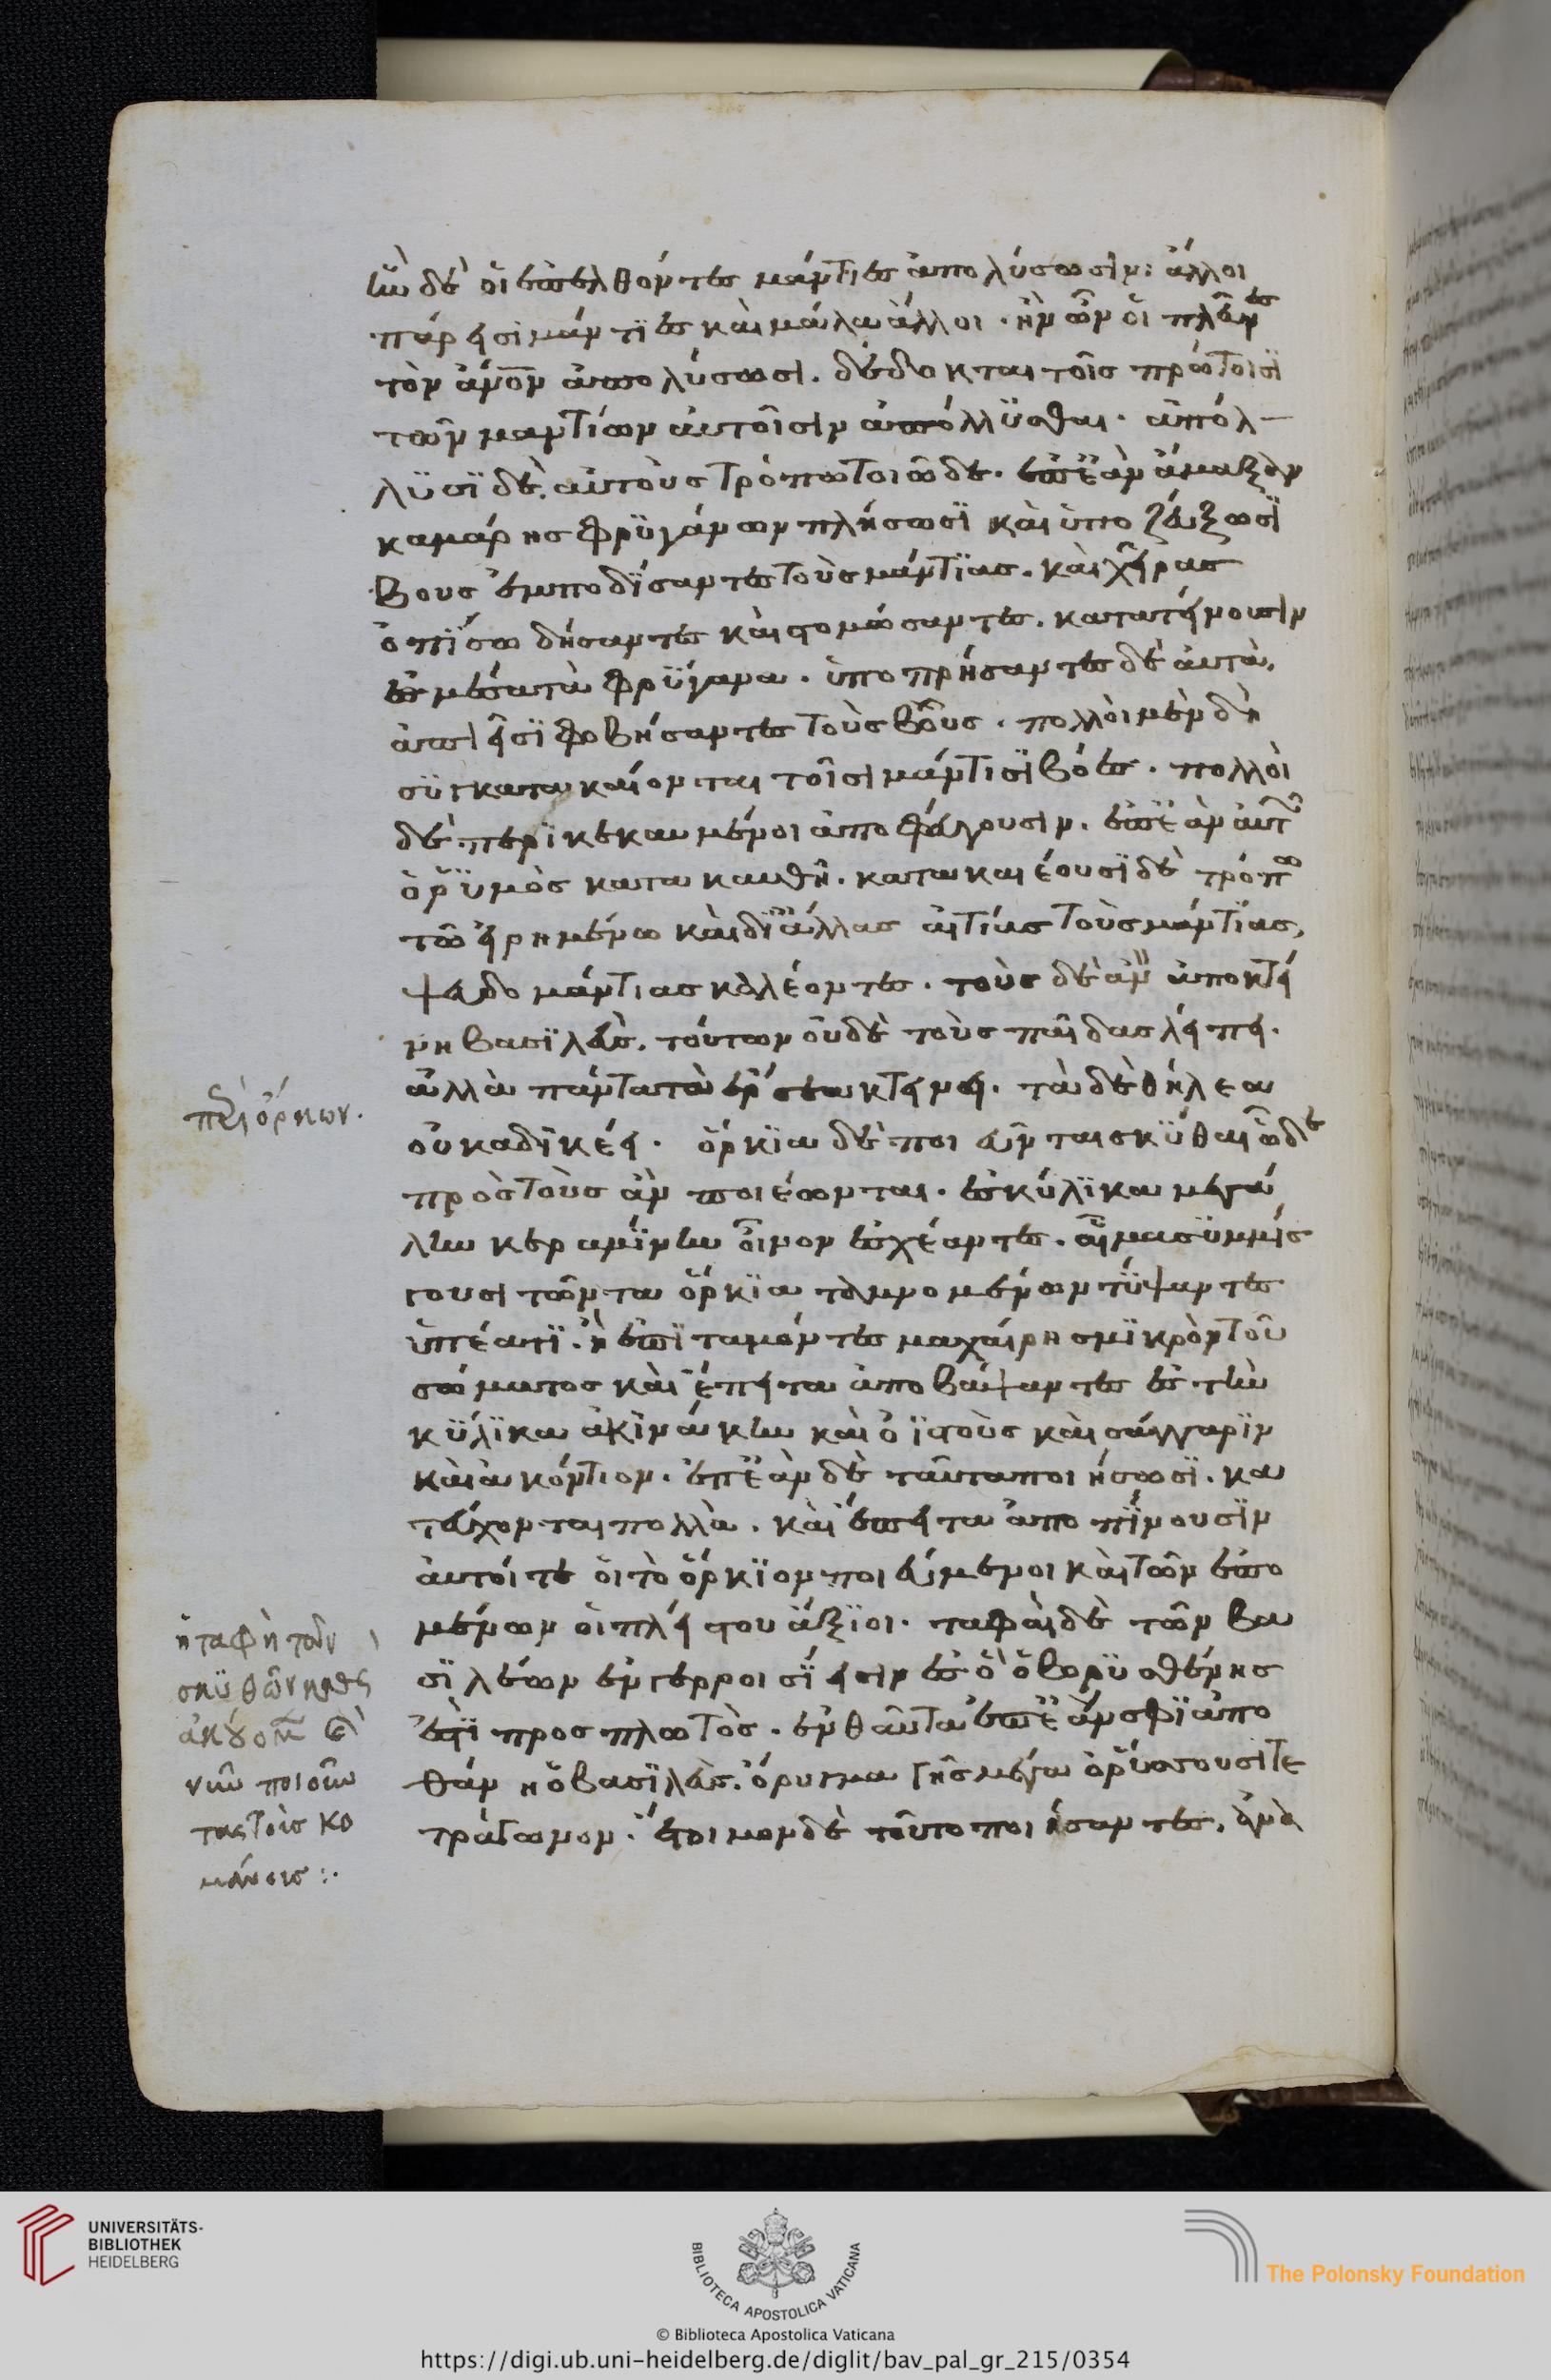 ἢν δὲ οἱ ἐπελθόντες μάντιες ἀπολύσωσιν· ἄλλοι
πάρεισι μάντιες καὶ μάλα ἄλλοι· ἢν ὦν οἱ πλεῦνες
τὸν ἄνον ἀπολύσωσι. δέδοκται τοῖς πρώτοισι
τῶν μαντίων αὐτοῖσιν ἀπόλλυσθαι· ἀπόλ-
λϋσϊ δὲ αὐτοὺς τρόπω τοιῶδε. ἐπεὰν ἅμαξαν
καμάρης φρϋγάνων πλήσωσϊ καὶ ὑποζεύξωσϊ
βοῦς ἐμποδίσαντες τοὺς μάντϊας. καὶ χεῖρας
ὀπίσω δήσαντες καὶ στομώσαντες. κατατείνουσιν
ἐς μέσα τὰ φρύγανα. ὑποπρήσαντες δὲ αὐτὰ,
ἀπιεῖσϊ φοβήσαντες τοὺς βοῦς. πολλοὶ μὲν δὴ
συγκατακαίονται τοῖσι μάντισϊ βόες. πολλοὶ
δὲ περϊκεκαυμένοι ἀποφεύγουσιν. ἐπεὰν αὐτ
ὁ ῥϋμὸς κατακαυθῆ. κατακαιέουσϊ δὲ τρόπω
τῶ εἰρημένω καὶ δϊ ἄλλας αἰτίας τοὺς μάντϊας,
ψευδομάντιας καλέοντες. τοὺς δὲ ἂν ἀποκτεί
νη βασϊλεὺς. τούτων οὐδὲ τοὺς παῖδας λείπει.
ἀλλὰ πάντα τὰ ἔρσενα κτείνει. τὰ δὲ θήλεα
οὐκ αδϊκέει. ὅρκϊα δὲ ποιεῦνται σκύθαι ὧδε
πρὸς τοὺς ἂν ποιέωνται. ἐς κύλϊκα μεγά
λην κεραμίνην οἶνον ἐσχέαντες. αἷμα συμμίσ
γουσι τῶν τὰ ὅρκϊα ταμνομένων τύψαντες
ὑπέατϊ. ἢ ἐπϊταμόντες μαχαίρη σμϊκρὸν τοῦ
σώματος καὶ ἔπειτα ἀποβάψαντες ἐς τὴν
κύλϊκα ἀκϊνάκην καὶ ὀϊστοὺς καὶ σάγγαρϊν
καὶ ἀκόντιον. ἐπεὰν δὲ ταῦτα ποιήσωσϊ. κα
τεύχονται πολλὰ. καὶ ἔπειτα ἀποπίνουσϊν
αὐτοί τε οἱ τὸ ὅρκϊον ποιεύμενοι καὶ τῶν ἑπο
μένων οἱ πλείστου ἄξϊοι. ταφαὶ δὲ τῶν βα
σϊλέων ἐν γέρροισϊ εἰσιν ἐς ὃ ὁ βορϋσθένης
ἐστϊ προσπλωτὸς. ἐνθαῦτα ἐπεὰν σφϊ ἀπο
θάνη ὁ βασϊλεὺς. ὄρυγμα γῆς μέγα ὀρύσσουσϊ τε
τράγωνον. ἕτοιμον δὲ τοῦτο ποιήσαντες, ἀνὰ
περὶ ὅρκων.
ἡ ταφὴ τῶν
σκϋθῶν
ἀκούομεν
νῦν ποιοῦν
τας τοὺς κο
μάνους :·
UNIVERSITÄTS-
BIBLIOTHEK
HEIDELBERG
BIBLIOTECA APOSTOLICA VATICANA
The Polonsky Foundation
© Biblioteca Apostolica Vaticana
https://digi.ub.uni-heidelberg.de/diglit/bav_pal_gr_215/0354